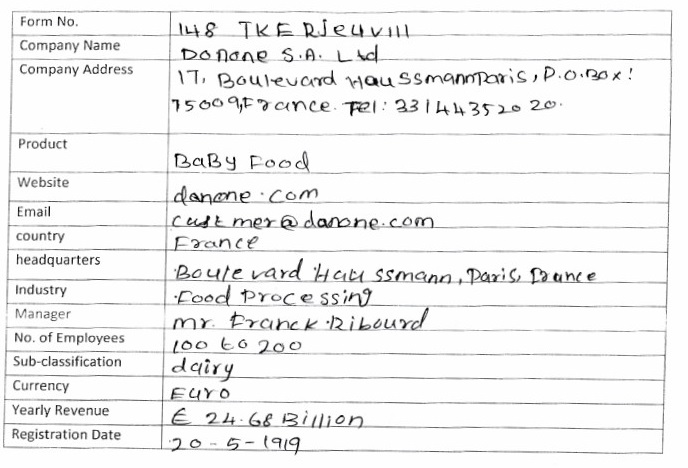 Form No. 148 TKE RJe4VIII
Company Name Donone S.A. Ltd
Company Address 17, Boulevard Haussmann Paris, P.O.Box:
75009, France. Tel: 3314435 20 20.
Product BaBy Food
Website danone.com
Email custmer@danone.com
country France
headquarters Boulevard Haussmann, Paris, France
Industry Food Processing
Manager mr. Franck Ribourd
No. of Employees 100 to 200
Sub-classification dairy
Currency Euro
Yearly Revenue € 24.68 Billion
Registration Date 20-5-1919